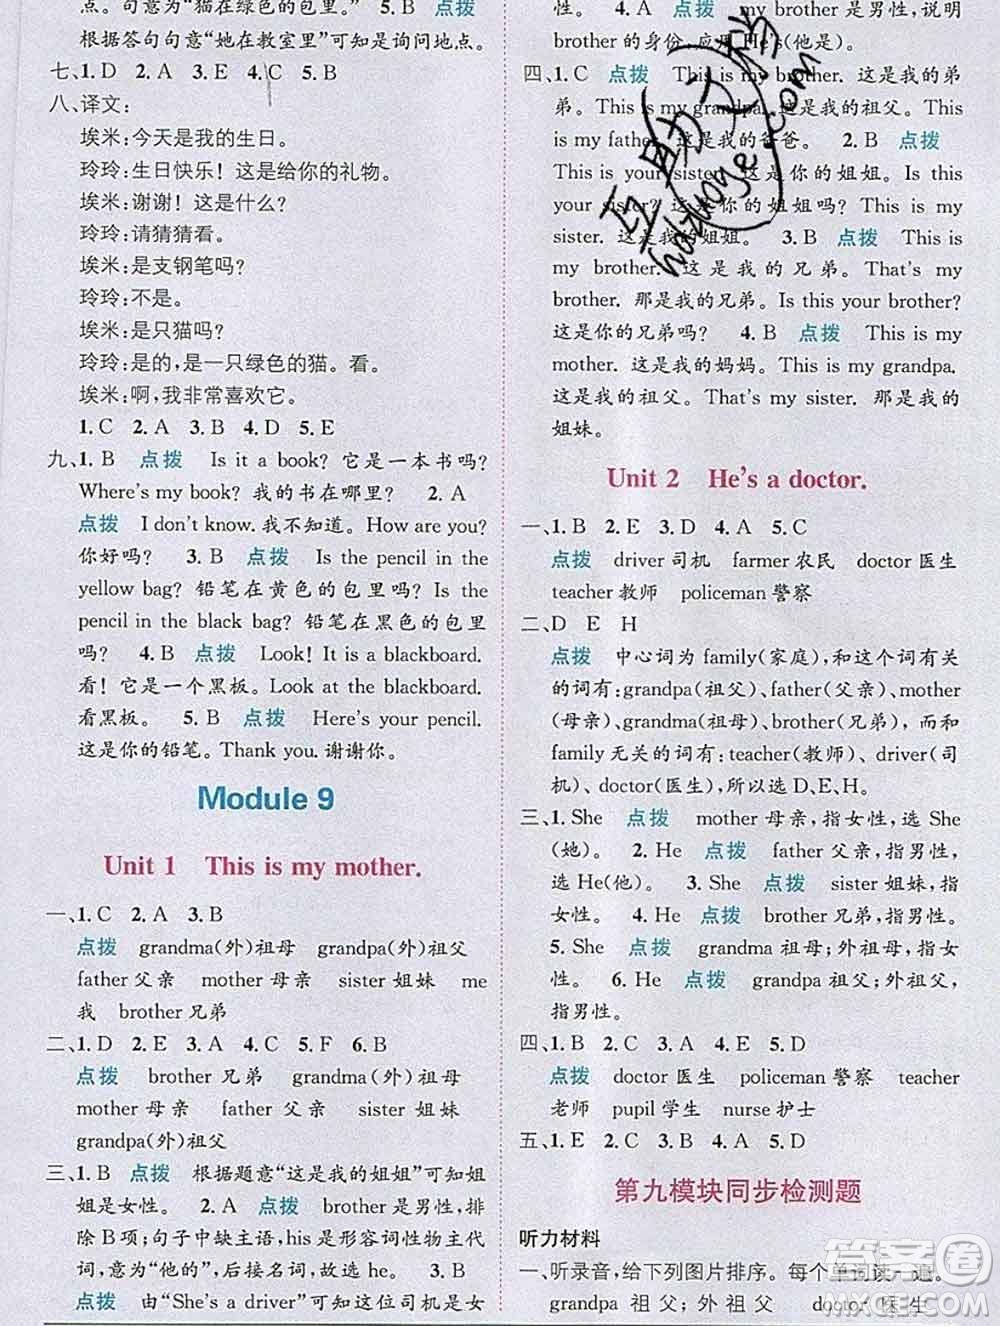 点。句意为“猫在绿色的包里。” 5. B 点拨
根据答句句意“她在教室里”可知是询问地点。
七、1. D 2. A 3. E 4. C 5. B
八、译文:
埃米:今天是我的生日。
玲玲:生日快乐！这是给你的礼物。
埃米:谢谢！这是什么？
玲玲:请猜猜看。
埃米:是支钢笔吗？
玲玲:不是。
埃米:是只猫吗？
玲玲:是的,是一只绿色的猫。看。
埃米:啊,我非常喜欢它。
1. C 2. A 3. B 4. D 5. E
九、1. B 点拨 Is it a book? 它是一本书吗?
Where's my book? 我的书在哪里? 2. A
点拨 I don't know. 我不知道。How are you?
你好吗? 3. B 点拨 Is the pencil in the
yellow bag? 铅笔在黄色的包里吗? Is the
pencil in the black bag? 铅笔在黑色的包里
吗? 4. B 点拨 Look! It is a blackboard.
看! 它是一个黑板。Look at the blackboard.
看黑板。 5. B 点拨 Here's your pencil.
这是你的铅笔。Thank you. 谢谢你。
Module 9
Unit 1 This is my mother.
一、1. C 2. A 3. B
点拨 grandma(外)祖母 grandpa(外)祖父
father 父亲 mother 母亲 sister 姐妹 me
我 brother 兄弟
二、1. D 2. E 3. A 4. C 5. F 6. B
点拨 brother 兄弟 grandma(外)祖母
mother 母亲 father 父亲 sister 姐妹
grandpa(外)祖父
三、1. B 点拨 根据题意“这是我的姐姐”可知姐
姐是女性。 2. A 点拨 brother 是男性,排
除 B 项;句子中缺主语,his 是形容词性物主代
词,意为“他的”,故选 he。 3. B
点拨 由“She's a driver”可知这位司机是女
性。 4. A 点拨 my brother 是男性,说明
brother 的身份,应用 He's(他是)。
四、1. C 点拨 This is my brother. 这是我的弟
弟。This is my grandpa. 这是我的祖父。This
is my father. 这是我的爸爸。 2. B 点拨
This is your sister. 这是你的姐姐。Is this
your sister? 这是你的姐姐吗? This is my
sister. 这是我的姐姐。 3. B 点拨 This is
my brother. 这是我的兄弟。That's my
brother. 那是我的兄弟。Is this your brother?
这是你的兄弟吗? 4. B 点拨 This is my
mother. 这是我的妈妈。This is my grandpa.
这是我的祖父。This is my sister. 那是我的
姐妹。
Unit 2 He's a doctor.
一、1. B 2. E 3. D 4. A 5. C
点拨 driver 司机 farmer 农民 doctor 医生
teacher 教师 policeman 警察
二、D E H
点拨 中心词为 family(家庭),和这个词有关
的词有:grandpa(祖父)、father(父亲)、mother
(母亲)、grandma(祖母)、brother(兄弟),而和
family 无关的词有:teacher(教师)、driver(司
机)、doctor(医生),所以选 D、E、H。
三、1. She 点拨 mother 母亲,指女性,选 She
(她)。 2. He 点拨 father 父亲,指男性,
选 He(他)。 3. She 点拨 sister 姐妹,指
女性。 4. He 点拨 brother 兄弟,指男性。
5. She 点拨 grandma 祖母;外祖母,指女
性。 6. He 点拨 grandpa 祖父;外祖父,
指男性。
四、1. B 2. A 3. C 4. E 5. D
点拨 doctor 医生 policeman 警察 teacher
老师 pupil 学生 nurse 护士
五、1. E 2. C 3. B 4. A 5. D
第九模块同步检测题
听力材料
一、听录音,给下列图片排序。每个单词读一遍。
grandpa 祖父;外祖父 doctor 医生
答案圈
MXQE.COM